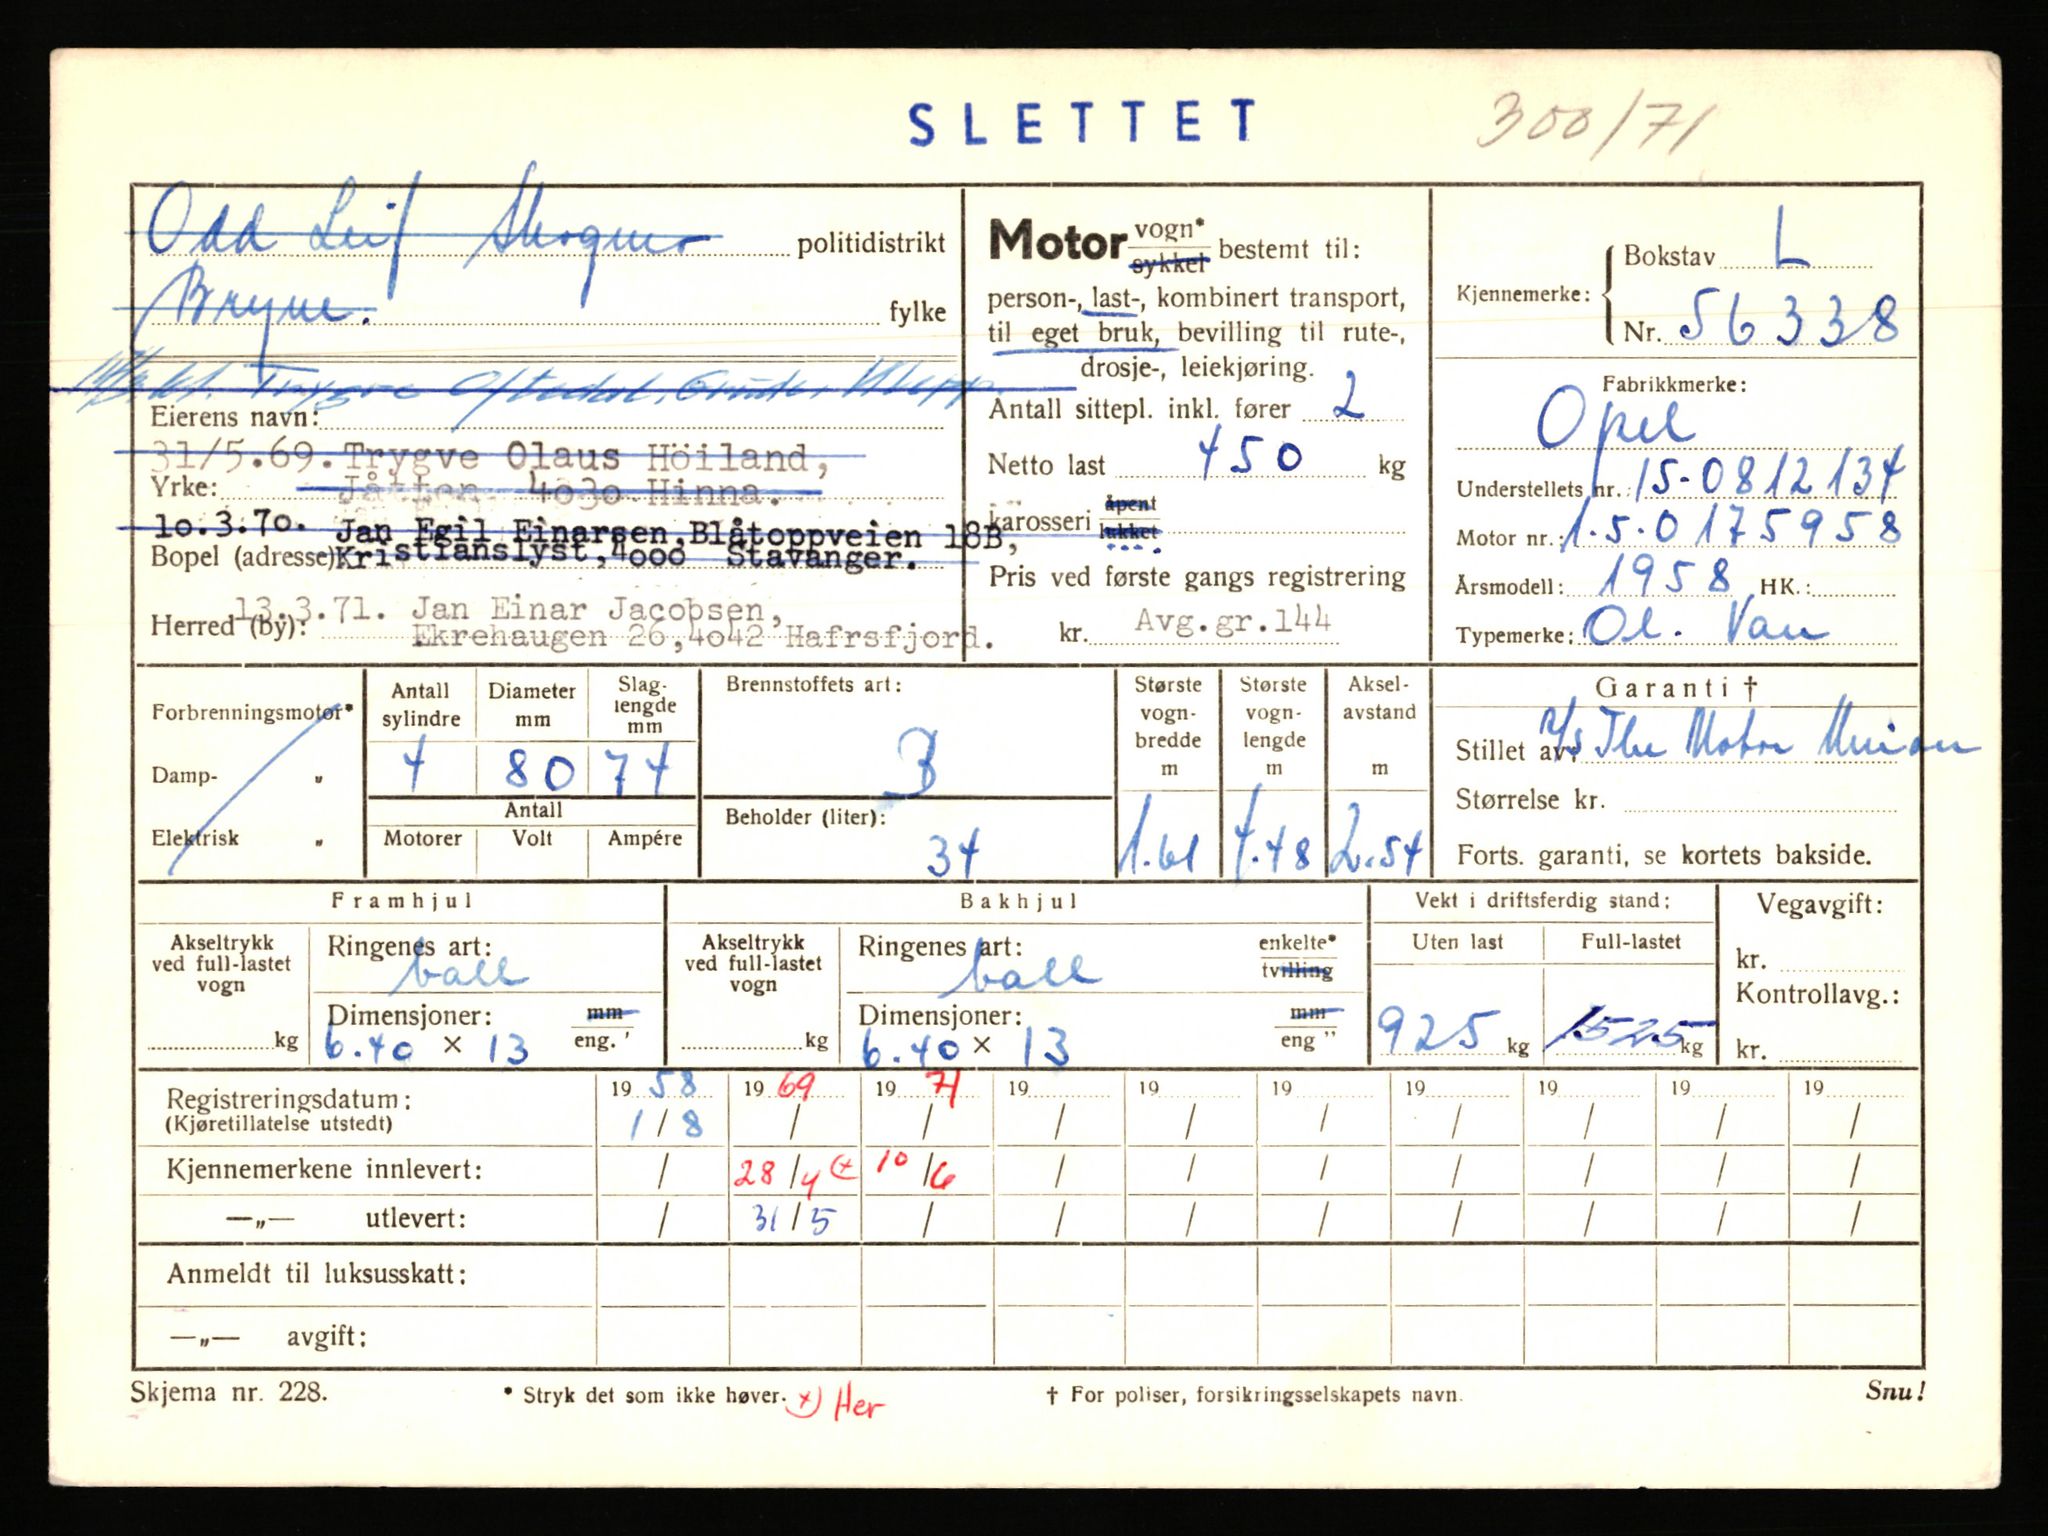 SLETTET
300/71
Odd Leif politidistrikt
Bryne. fylke
Trygve Oftedal, Klepp
Eierens navn:
31/5.69. Trygve Olaus Höiland,
Yrke: Jåtten 4030 Hinna.
10.3.70. Jan Egil Einarsen, Blåtoppveien 18B,
Bopel (adresse) Kristianslyst, 4000 Stavanger.
13.3.71. Jan Einar Jacobsen,
Herred (by): Ekrehaugen 26, 4042 Hafrsfjord.
Motor vogn* sykkel bestemt til:
person-, last-, kombinert transport,
til eget bruk, bevilling til rute-,
drosje-, leiekjøring.
Antall sittepl. inkl. fører 2
Netto last 450 kg
karosseri åpent lukket
Pris ved første gangs registrering
kr. Avg.gr.144
Kjennemerke: Bokstav L
Nr. 56338
Fabrikkmerke:
Opel
Understellets nr.: 15-0812134
Motor nr.: 1.5-0175958
Årsmodell: 1958 HK.:
Typemerke: Ol. Van
Forbrenningsmotor*
Damp- „
Elektrisk „
Antall sylindre 4
Diameter mm 80
Slag-lengde mm 74
Antall
Motorer Volt Ampére
Brennstoffets art:
B
Beholder (liter):
34
Største vogn-bredde m 1.61
Største vogn-lengde m 4.48
Aksel-avstand m 2.54
Garanti †
Stillet av: A/S The Motor Union
Størrelse kr.
Forts. garanti, se kortets bakside.
Framhjul
Akseltrykk ved full-lastet vogn
kg
Ringenes art:
ball
Dimensjoner: mm eng. '
6.40 x 13
Bakhjul
Akseltrykk ved full-lastet vogn
kg
Ringenes art: enkelte* tvilling
ball
Dimensjoner: mm eng "
6.40 x 13
Vekt i driftsferdig stand:
Uten last Full-lastet
925 kg 1525 kg
Vegavgift:
kr.
Kontrollavg.:
kr.
Registreringsdatum: 19 58 19 69 19 71 19 19 19 19 19 19 19
(Kjøretillatelse utstedt) 1/8 / / / / / / / / /
Kjennemerkene innlevert: / 28/4 x) 10/6 / / / / / / /
—„— utlevert: / 31/5 / / / / / / / /
Anmeldt til luksusskatt:
—„— avgift:
Skjema nr. 228. * Stryk det som ikke høver. x) Her † For poliser, forsikringsselskapets navn. Snu!